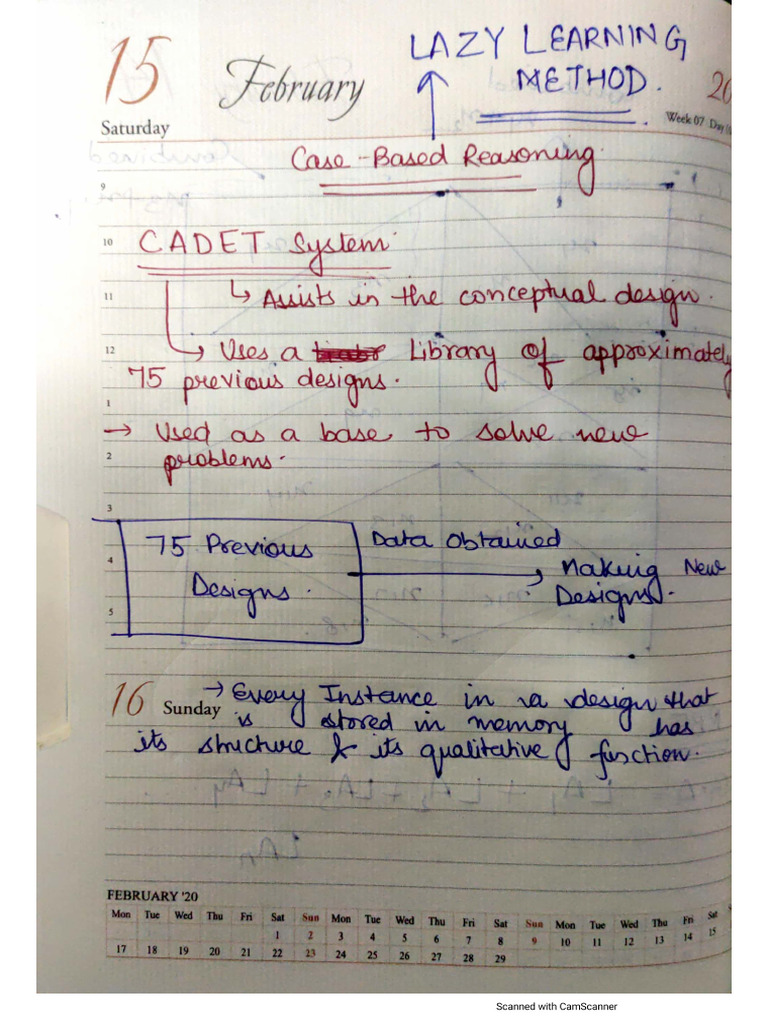 LAZY LEARNING
METHOD.
15 February 20
Saturday
Week 07 Day
Case-Based Reasoning
9
10 CADET System
11 ↳ Assists in the conceptual design.
12 → Uses a Library of approximately
75 previous designs.
1
→ Used as a base to solve new
2
problems.
3
75 Previous Data Obtained
4
Designs. → Making New
Designs.
5
16 Sunday → Every Instance in a design that
is stored in memory has
its structure & its qualitative function.
FEBRUARY '20
Mon Tue Wed Thu Fri Sat Sun Mon Tue Wed Thu Fri Sat Sun Mon Tue Wed Thu Fri Sat
1 2 3 4 5 6 7 8 9 10 11 12 13 14 15
17 18 19 20 21 22 23 24 25 26 27 28 29
Scanned with CamScanner